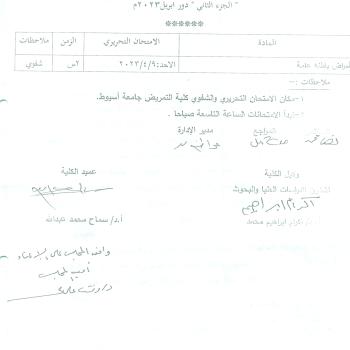 " الجزء الثاني " دور ابريل ٢٠٢٣م
******
المادة الامتحان التحريري الزمن ملاحظات
امراض باطنة عامة الاحد:٢٠٢٣/٤/٩ ٢س شفوي
ملاحظات :-
١-مكان الامتحان التحريري والشفوي كلية التمريض جامعة أسيوط.
٢-تبدأ الامتحانات الساعة التاسعة صباحا .
المراجع مدير الإدارة
وكيل الكلية عميد الكلية
لشئون الدراسات العليا والبحوث
اكرام ابراهيم
أ.د/ اكرام ابراهيم محمد أ.د/ سماح محمد عبدالله
وافق المجلس على
أمين المجلس